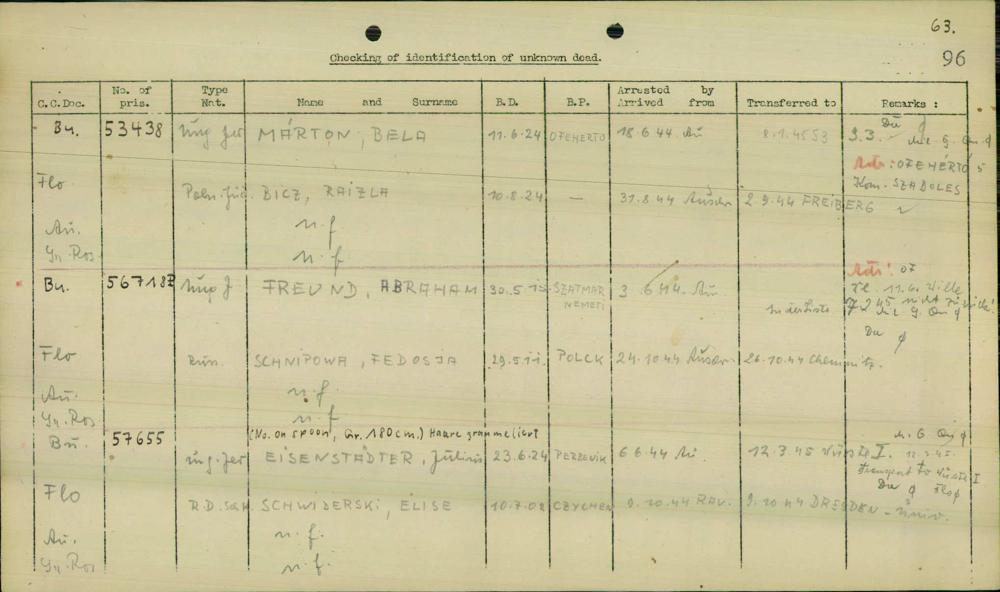 63.
96
Checking of identification of unknown dead.
C.C.Doc. No. of pris. Type Nat. Name and Surname B.D. B.P. Arrested by Arrived from Transferred to Remarks :
Bu. 53438 Ung Jer MÁRTON, BELA 11.6.24 OFEHERTO 18.6.44 Au 8.1.45 S3 3.3. Du ɸ
Adr: OFEHÉRTÓ 5
Kom. SZABOLES
Flo Poln. Jüd. BICZ, RAIZLA 10.8.24 — 31.8.44 Auschw 2.9.44 FREIBERG
Au. n.f
Gr. Ros n.f
Bu. 56718 Ung J FREUND, ABRAHAM 30.5 SZATMAR NEMETI 3 6.44. Au. Adr: 07
Du ɸ
Flo Russ. SCHNIPOWA, FEDOSJA 29.5.11. POLCK 24.10.44 Auschw. 26.10.44 Chemnitz.
Au. n.f
Gr. Ros n.f
(No. on spoon, Gr. 180 cm.) Haare grammeliert
Bu. 57655 Ung. Jer EISENSTÄDTER, Julius 23.6.24 6 6.44 Au. 12.3.45 Wüste I. 12.3.45.
Transport to Wüste I
Du ɸ Flo ɸ
Flo R.D. Sch SCHWIDERSKI, ELISE 10.7.02 CZYCHEN 9.10.44 RAV. 9.10.44 DRESDEN - Univ.
Au. n.f.
Gr. Ros n.f.